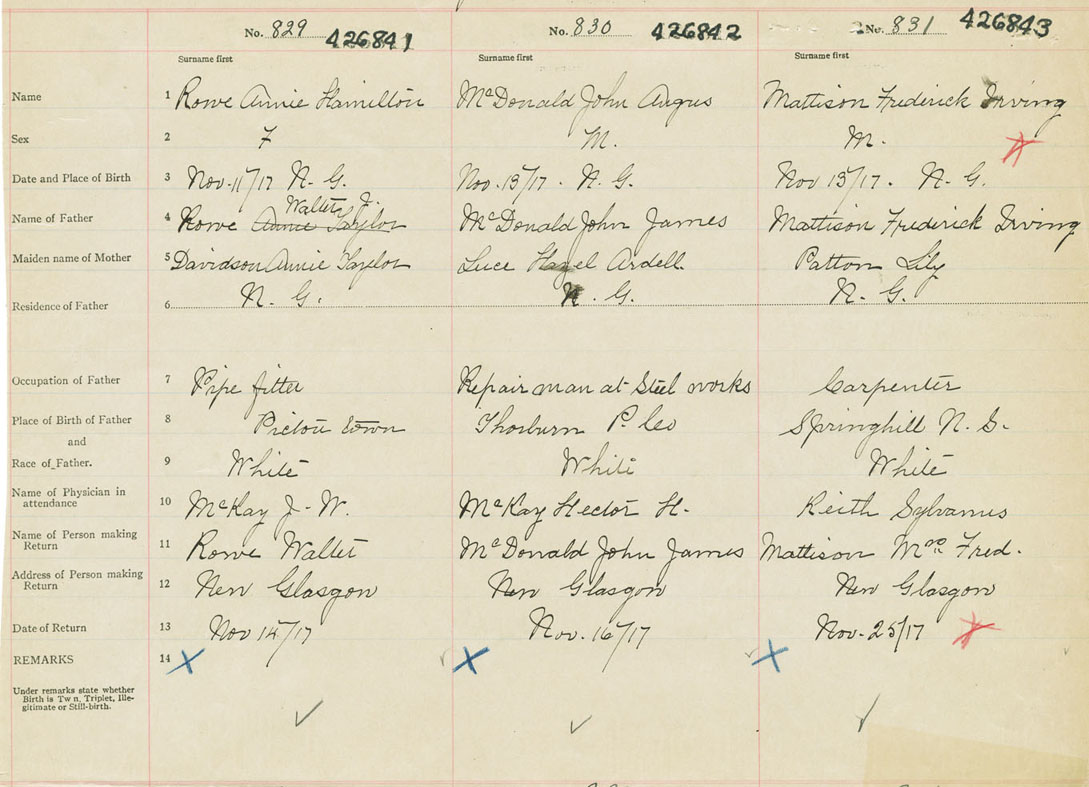 No. 829 426841 No. 830 426842 No. 831 426843
Surname first Surname first Surname first
Name 1 Rowe Annie Hamilton McDonald John Angus Mattison Frederick Irving
Sex 2 F M. M.
Date and Place of Birth 3 Nov. 11/17 N. G. Nov. 13/17. N. G. Nov 13/17. N. G.
Walter J.
Name of Father 4 Rowe Annie Taylor McDonald John James Mattison Frederick Irving
Maiden name of Mother 5 Davidson Annie Taylor Luce Hazel Ardell. Patton Lily
Residence of Father 6 N. G. N. G. N. G.
Occupation of Father 7 Pipe fitter Repair man at Steel works Carpenter
Place of Birth of Father 8 Pictou town Thorburn P. Co Springhill N. S.
and
Race of Father. 9 White White White
Name of Physician in
attendance 10 McKay J. W. McKay Hector H. Keith Sylvanus
Name of Person making
Return 11 Rowe Walter McDonald John James Mattison Mrs. Fred.
Address of Person making
Return 12 New Glasgow New Glasgow New Glasgow
Date of Return 13 Nov 14/17 Nov. 16/17 Nov. 25/17
REMARKS 14
Under remarks state whether
Birth is Tw n, Triplet, Ille-
gitimate or Still-birth.